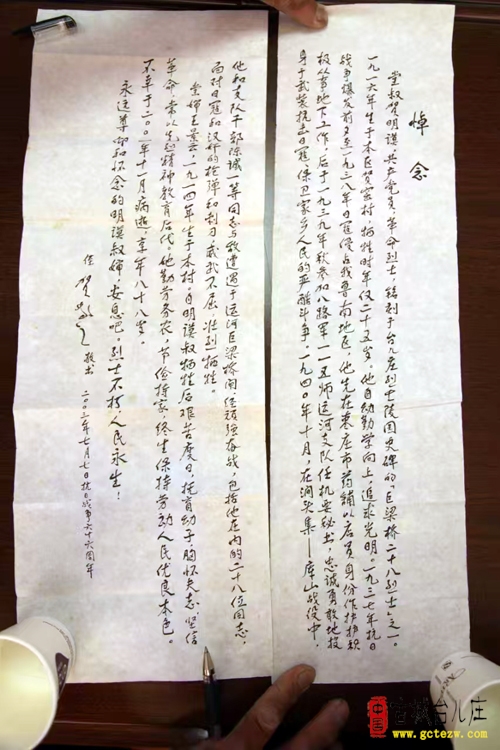 悼念
堂叔贺明谟，共产党员，革命烈士，铭刻于台儿庄烈士陵园史碑的“巨梁桥二十八烈士”之一。
一九一六年生于本区贺窑村，牺牲时年仅二十五岁。他自幼勤学向上，追求光明，一九三七年抗日
战争爆发前夕至一九三八年日寇侵占我鲁南地区，他先在枣庄市药铺以店员身份作掩护积
极从事地下工作，后于一九三九年秋参加八路军一一五师运河支队任机要秘书，忠诚勇敢地投
身于武装抗击日寇，保卫家乡人民的严酷斗争。一九四〇年十月，在涧头集——库山战役中，
他和支队干部陈诚一等同志与敌遭遇于运河巨梁桥闸，经顽强奋战，包括他在内的二十八位同志，
面对日寇和汉奸的枪弹和刺刀，威武不屈，壮烈牺牲。
堂婶王景云，一九一四年生于本村。自明谟叔牺牲后艰苦度日，抚育幼子，胸怀夫志，坚信
革命，常以先烈精神教育后代。她勤劳务农，节俭持家，终生保持劳动人民优良本色。
不幸于二〇〇一年十一月病逝，享年八十八岁。
永远尊敬和怀念的明谟叔婶，安息吧。烈士不朽，人民永生！
侄 贺 敬书
二〇〇三年七月七日抗日战争六十六周年
中国 古城台儿庄
www.gctezw.com